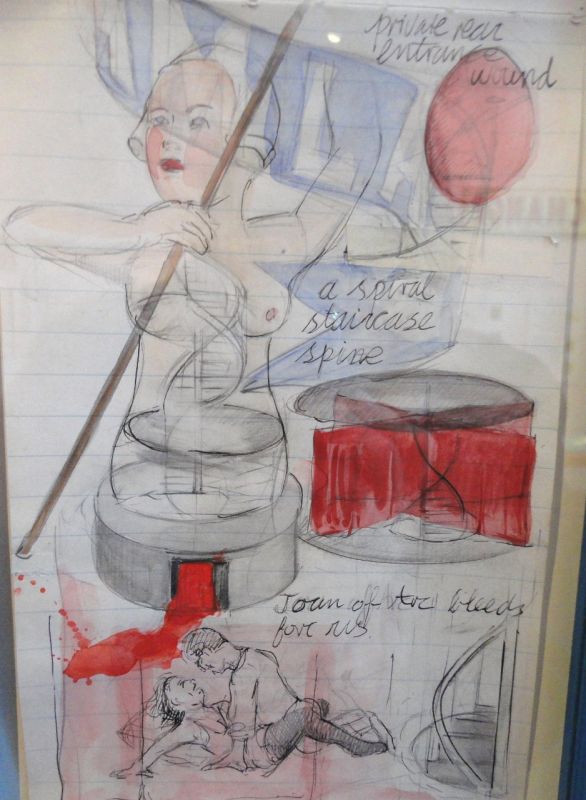 private rear
entrance
wound
a spiral
staircase
spine
Joan of Arc bleeds